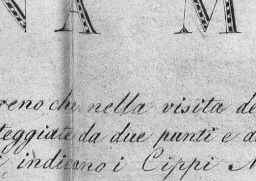 NA M
reno che nella visita de
teggiate da due punti e a
indicano i Cippi N